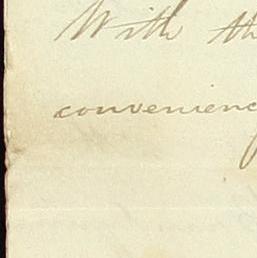 With th
convenienc